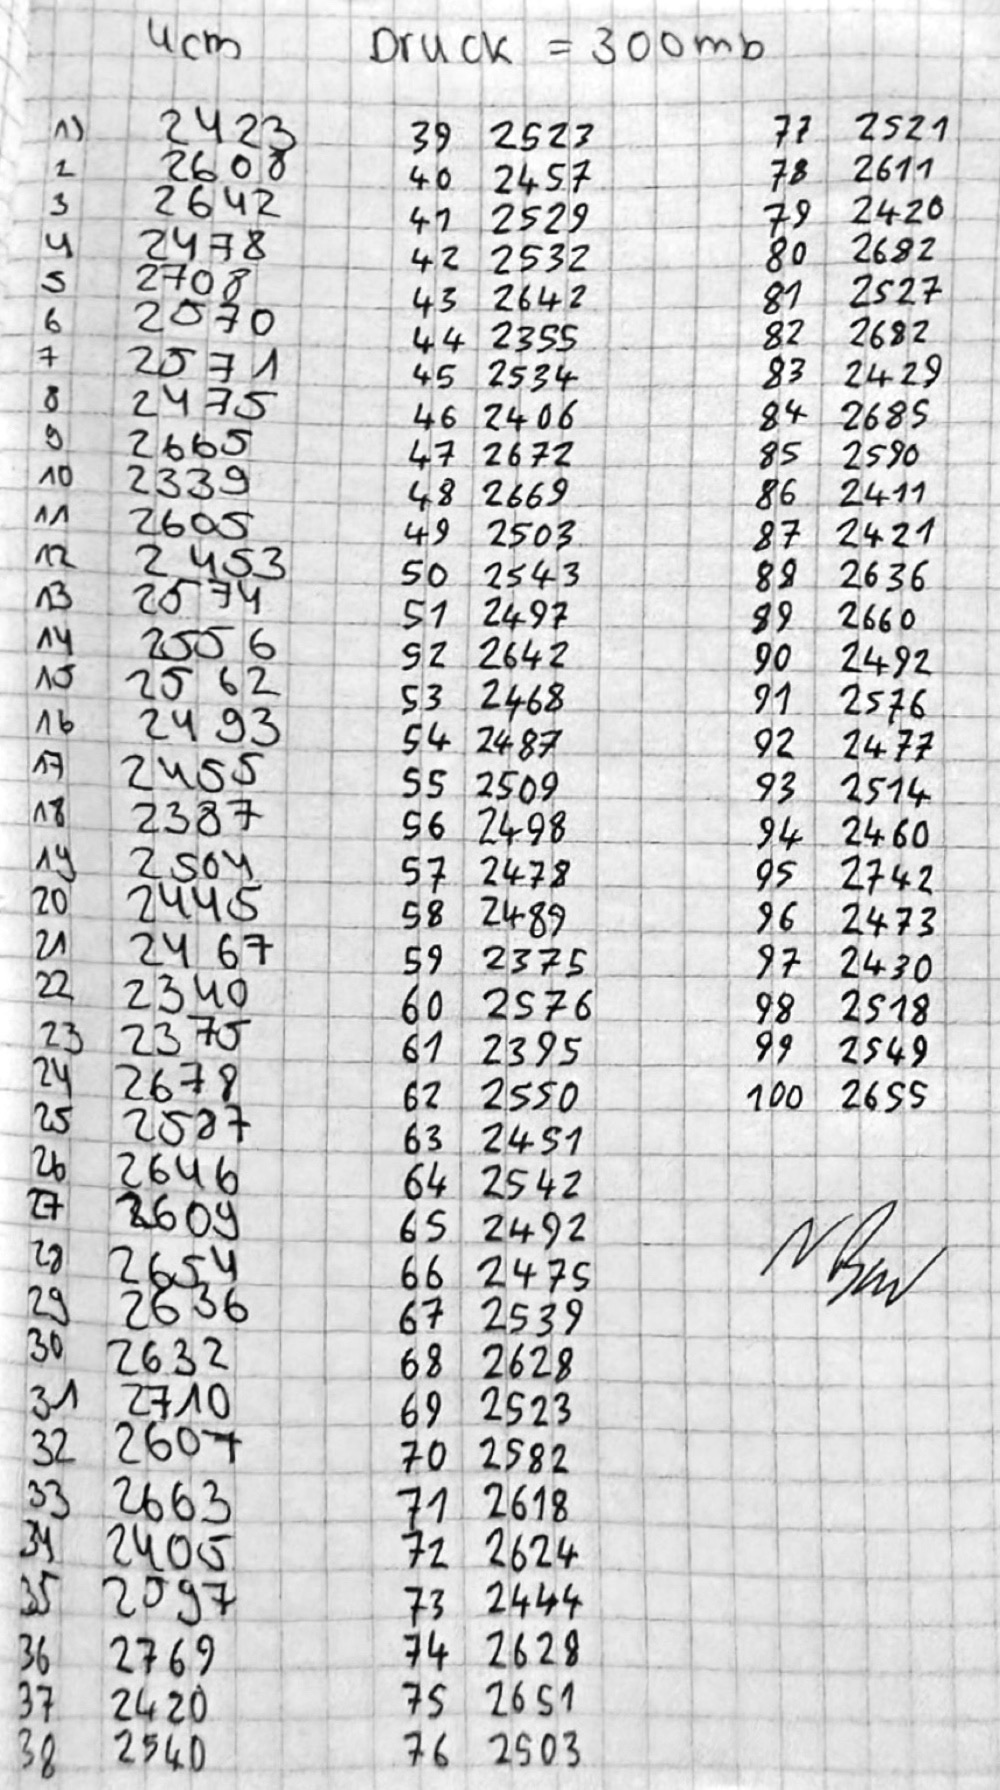 4cm Druck = 300mb
1) 2423
2 2608
3 2642
4 2478
5 2708
6 2570
7 2571
8 2475
9 2665
10 2339
11 2605
12 2453
13 2574
14 2556
15 2562
16 2493
17 2455
18 2387
19 2504
20 2445
21 2467
22 2340
23 2375
24 2678
25 2587
26 2646
27 2609
28 2654
29 2636
30 2632
31 2710
32 2607
33 2663
34 2405
35 2597
36 2769
37 2420
38 2540
39 2523
40 2457
41 2529
42 2532
43 2642
44 2355
45 2534
46 2406
47 2672
48 2669
49 2503
50 2543
51 2497
52 2642
53 2468
54 2487
55 2509
56 2498
57 2478
58 2489
59 2375
60 2576
61 2395
62 2550
63 2451
64 2542
65 2492
66 2475
67 2539
68 2628
69 2523
70 2582
71 2618
72 2624
73 2444
74 2628
75 2651
76 2503
77 2521
78 2611
79 2420
80 2682
81 2527
82 2682
83 2429
84 2685
85 2590
86 2411
87 2421
88 2636
89 2660
90 2492
91 2576
92 2477
93 2514
94 2460
95 2742
96 2473
97 2430
98 2518
99 2549
100 2655